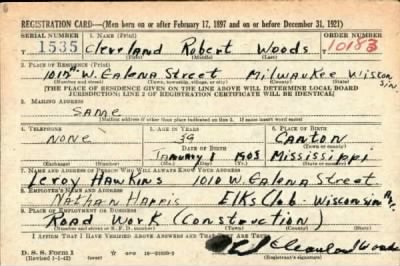 REGISTRATION CARD—(Men born on or after February 17, 1897 and on or before December 31, 1921)
SERIAL NUMBER 1. NAME (Print) ORDER NUMBER
T 1535 Cleveland Robert Woods 10183
2. PLACE OF RESIDENCE (Print)
W. Galena Street Milwaukee Wisconsin
[THE PLACE OF RESIDENCE GIVEN ON THE LINE ABOVE WILL DETERMINE LOCAL BOARD
JURISDICTION; LINE 2 OF REGISTRATION CERTIFICATE WILL BE IDENTICAL]
3. MAILING ADDRESS
SAME
[Mailing address if other than place indicated on line 2. If same insert word same]
4. TELEPHONE 5. AGE IN YEARS 6. PLACE OF BIRTH
NONE 39 CANTON
DATE OF BIRTH
January 1 1903 Mississippi
7. NAME AND ADDRESS OF PERSON WHO WILL ALWAYS KNOW YOUR ADDRESS
Leroy Hawkins 1010 W. Galena Street
8. EMPLOYER'S NAME AND ADDRESS
Nathan Harris Elks Club - Wisconsin
9. PLACE OF EMPLOYMENT OR BUSINESS
Road Work (Construction)
I AFFIRM THAT I HAVE VERIFIED ABOVE ANSWERS AND THAT THEY ARE TRUE.
D. S. S. Form 1
(Revised 1-1-42) (over)
Cleveland Woods